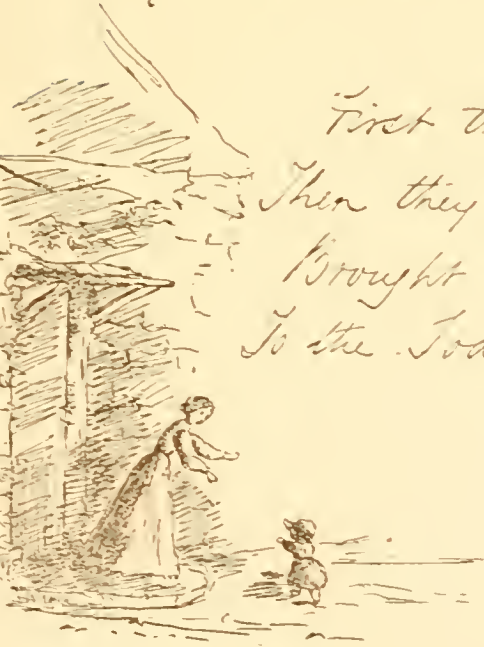 First th
Then they
Brought
To the Tod